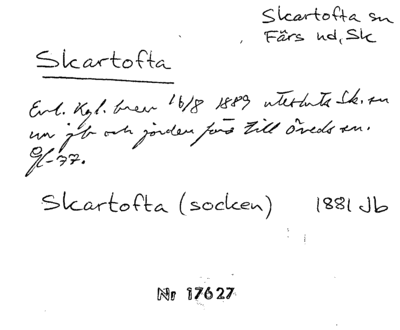 Skartofta sn
Färs hd, Sk
Skartofta
Enl. Kgl. brev 16/8 1889 utesluts Sk. sn
ur jb och jorden förs till Öveds sn.
Skartofta (socken) 1881 Jb
Nr 17627